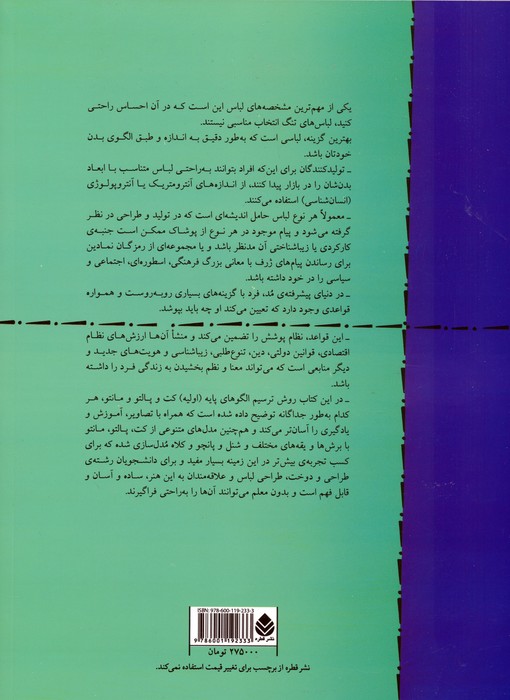 یکی از مهم‌ترین مشخصه‌های لباس این است که در آن احساس راحتی
کنید، لباس‌های تنگ انتخاب مناسبی نیستند.
بهترین گزینه، لباسی است که به‌طور دقیق به اندازه و طبق الگوی بدن
خودتان باشد.
ـ تولیدکنندگان برای این‌که افراد بتوانند به‌راحتی لباس متناسب با ابعاد
بدن‌شان را در بازار پیدا کنند، از اندازه‌های آنترومتریک یا آنتروپولوژی
(انسان‌شناسی) استفاده می‌کنند.
ـ معمولاً هر نوع لباس حامل اندیشه‌ای است که در تولید و طراحی در نظر
گرفته می‌شود و پیام موجود در هر نوع از پوشاک ممکن است جنبه‌ی
کارکردی یا زیباشناختی آن مدنظر باشد و یا مجموعه‌ای از رمزگان نمادین
برای رساندن پیام‌های ژرف با معانی بزرگ فرهنگی، اسطوره‌ای، اجتماعی و
سیاسی را در خود داشته باشد.
ـ در دنیای پیشرفته‌ی مُد، فرد با گزینه‌های بسیاری روبه‌روست و همواره
قواعدی وجود دارد که تعیین می‌کند او چه باید بپوشد.
ـ این قواعد، نظام پوشش را تضمین می‌کند و منشأ آن‌ها ارزش‌های نظام
اقتصادی، قوانین دولتی، دین، تنوع‌طلبی، زیباشناسی و هویت‌های جدید و
دیگر منابعی است که می‌تواند معنا و نظم بخشیدن به زندگی فرد را داشته
باشد.
ـ در این کتاب روش ترسیم الگوهای پایه (اولیه) کت و پالتو و مانتو، هر
کدام به‌طور جداگانه توضیح داده شده است که همراه با تصاویر، آموزش و
یادگیری را آسان‌تر می‌کند و هم‌چنین مدل‌های متنوعی از کت، پالتو، مانتو
با برش‌ها و یقه‌های مختلف و شنل و پانچو و کلاه مُدل‌سازی شده که برای
کسب تجربه‌ی بیش‌تر در این زمینه بسیار مفید و برای دانشجویان رشته‌ی
طراحی و دوخت، طراحی لباس و علاقه‌مندان به این هنر، ساده و آسان و
قابل فهم است و بدون معلم می‌توانند آن‌ها را به‌راحتی فراگیرند.
ISBN: 978-600-119-233-3
9786001192333
نشر قطره
۲۷۵۰۰۰ تومان
نشر قطره از برچسب برای تغییر قیمت استفاده نمی‌کند.